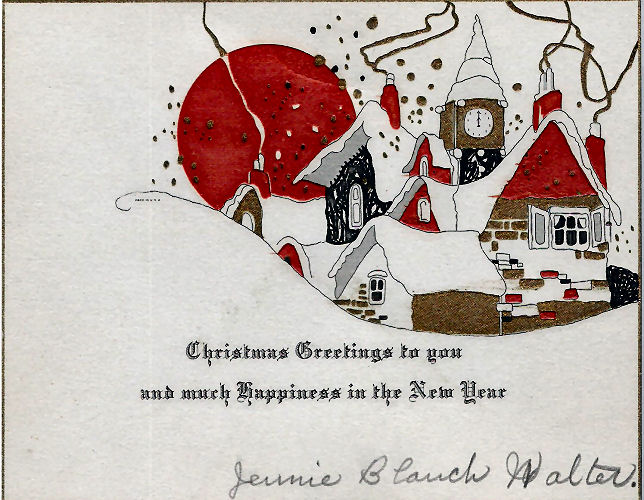 MADE IN U.S.A.
Christmas Greetings to you
and much Happiness in the New Year
Jennie Blanch Walter.